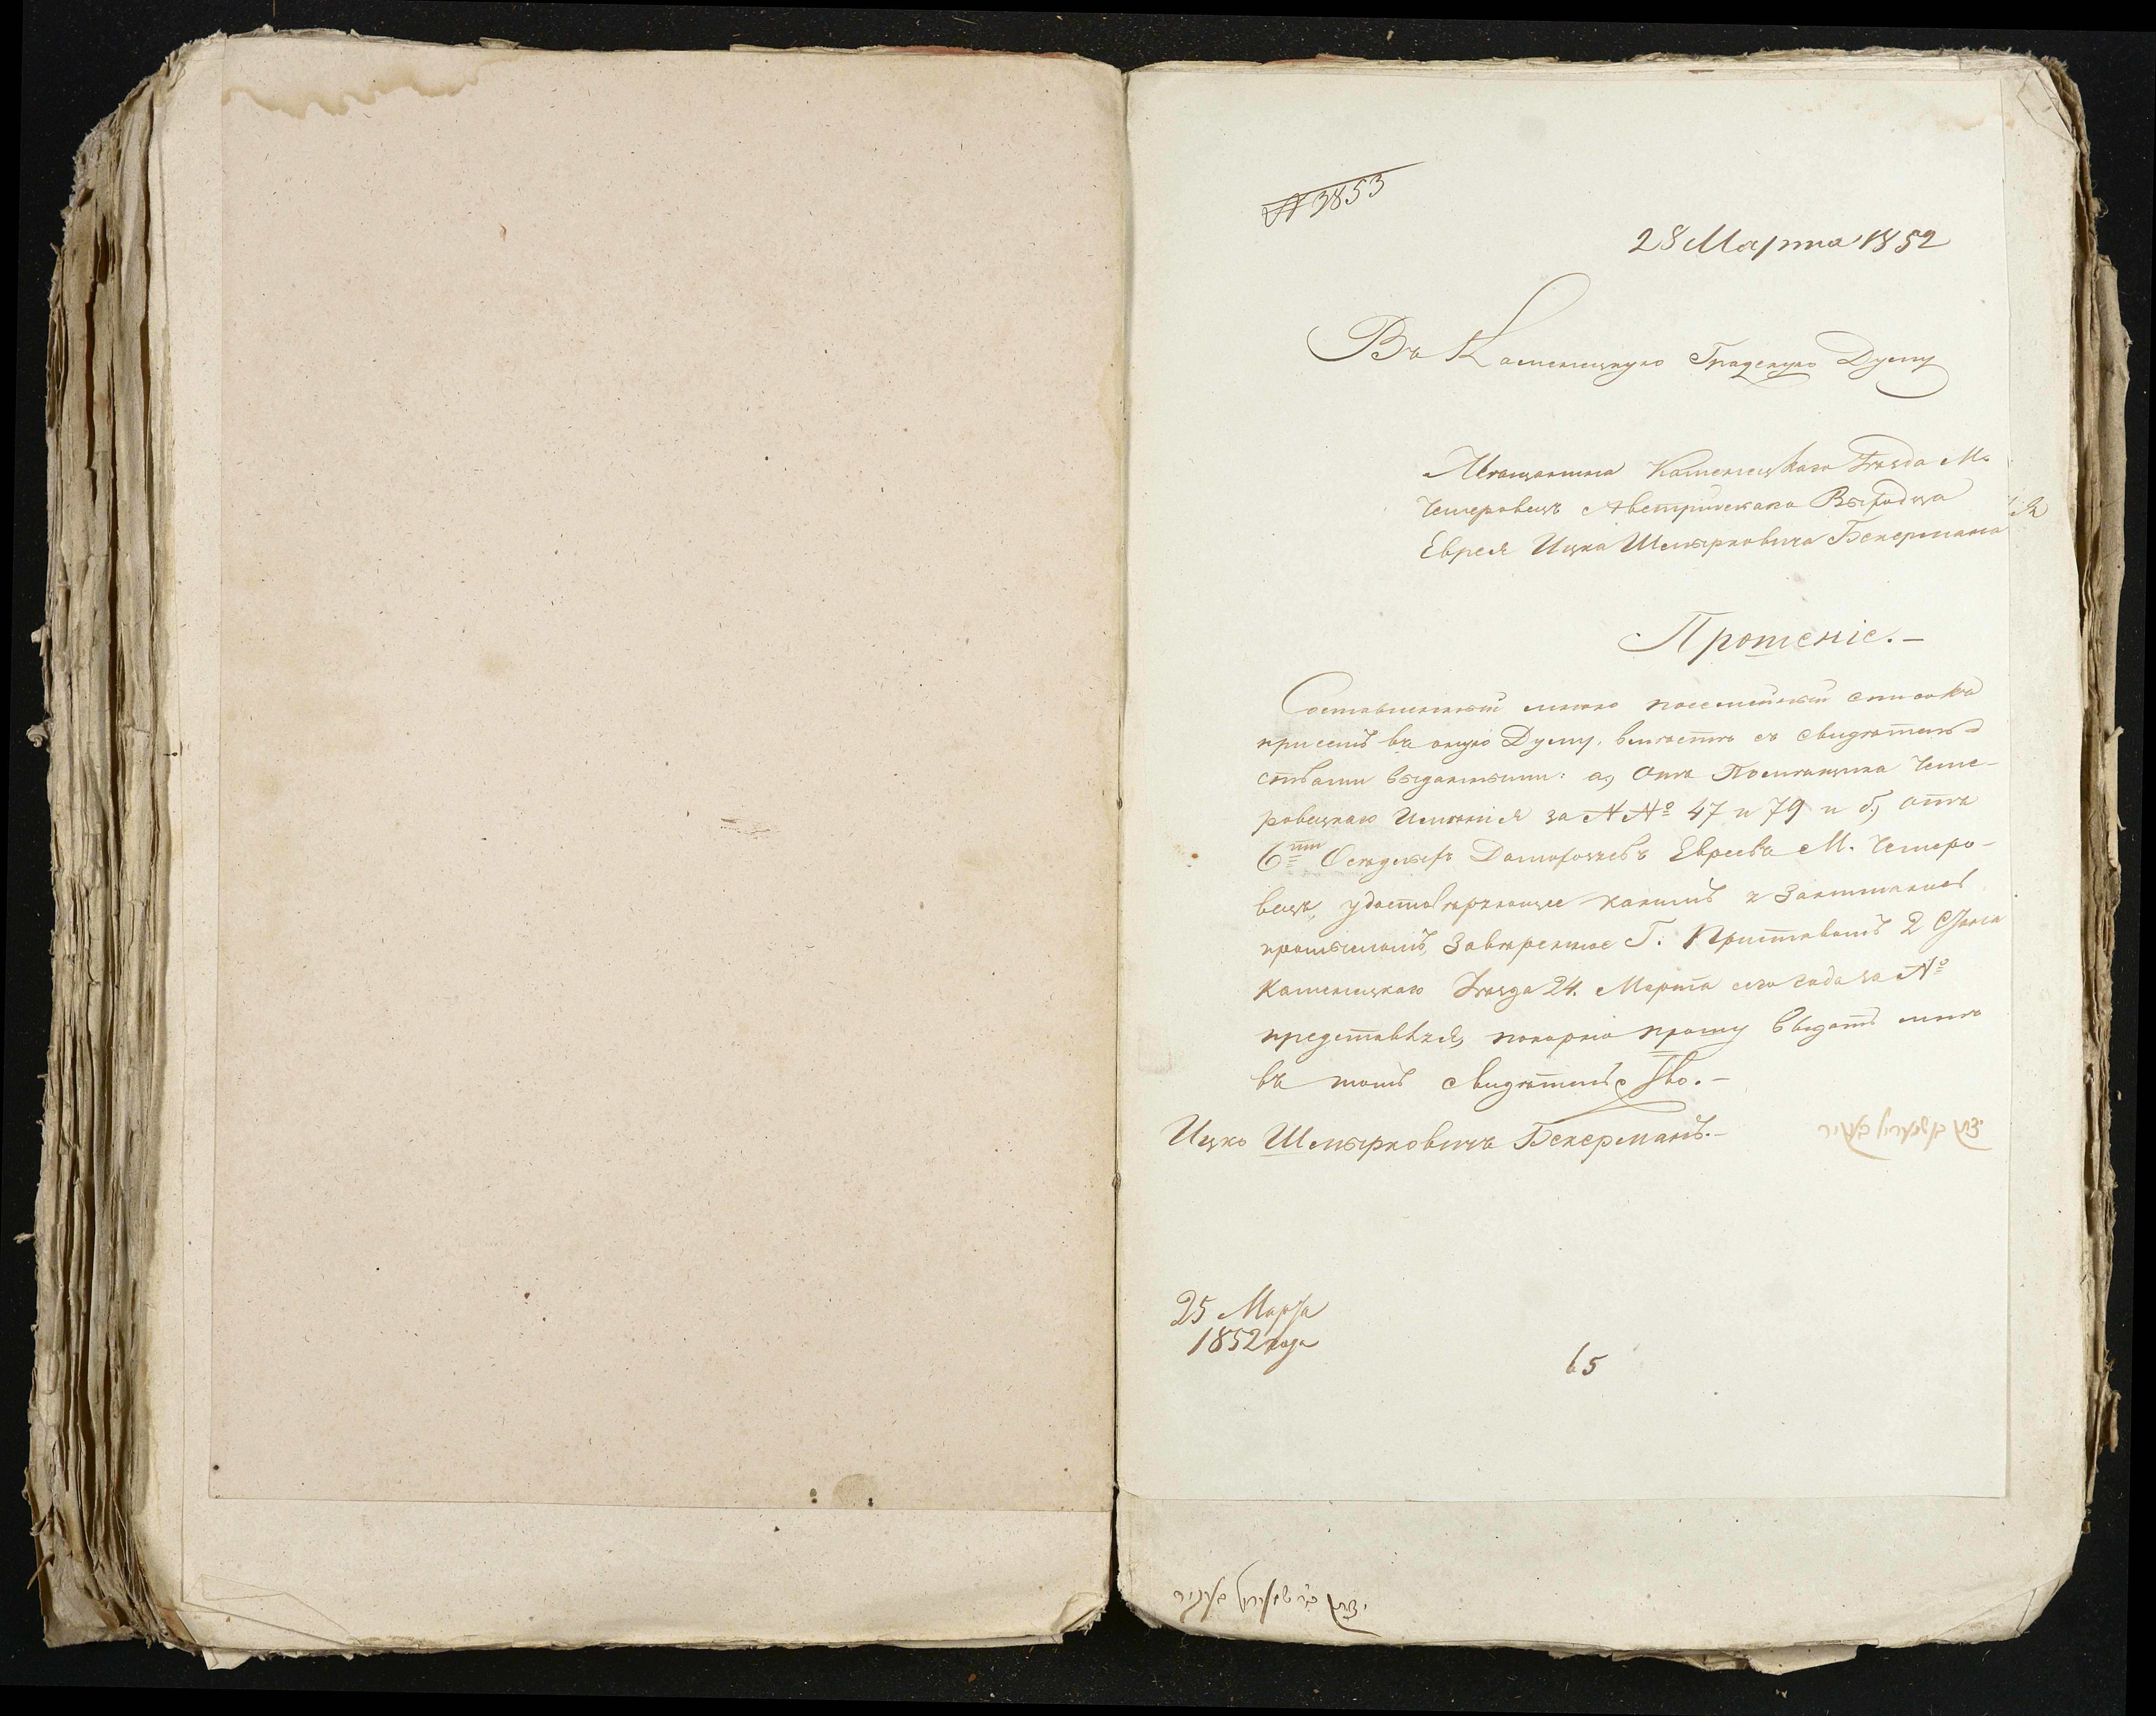 № 3853
28 Марта 1852
Въ Каменецкую Градскую Думу
Мѣщанина Каменецкаго Уѣзда М.
Чемеровецъ Австрійскаго Выходца
Еврея Ицка Шмырковича Бекермана
Прошеніе.—
Составленный мною посемейный списокъ
при семъ въ оную Думу, вмѣстѣ съ свидѣтель-
ствами выданными: а, Отъ Помѣщика Чеме-
ровецкаго Имѣнія за №№ 47 и 79 и б, отъ
6ти Осѣдлыхъ Домохозяевъ Евреевъ М. Чемеро-
вецъ, удостовѣряющее каким я занимаюсь
промысломъ, завѣренное Г. Приставомъ 2 Стана
Каменецкаго Уѣзда 24. Марта сего года за №
представляя, покорно прошу выдать мнѣ
въ томъ свидѣтельство.—
Ицко Шмырковичъ Бекерманъ.—
25 Марта
1852 года
65